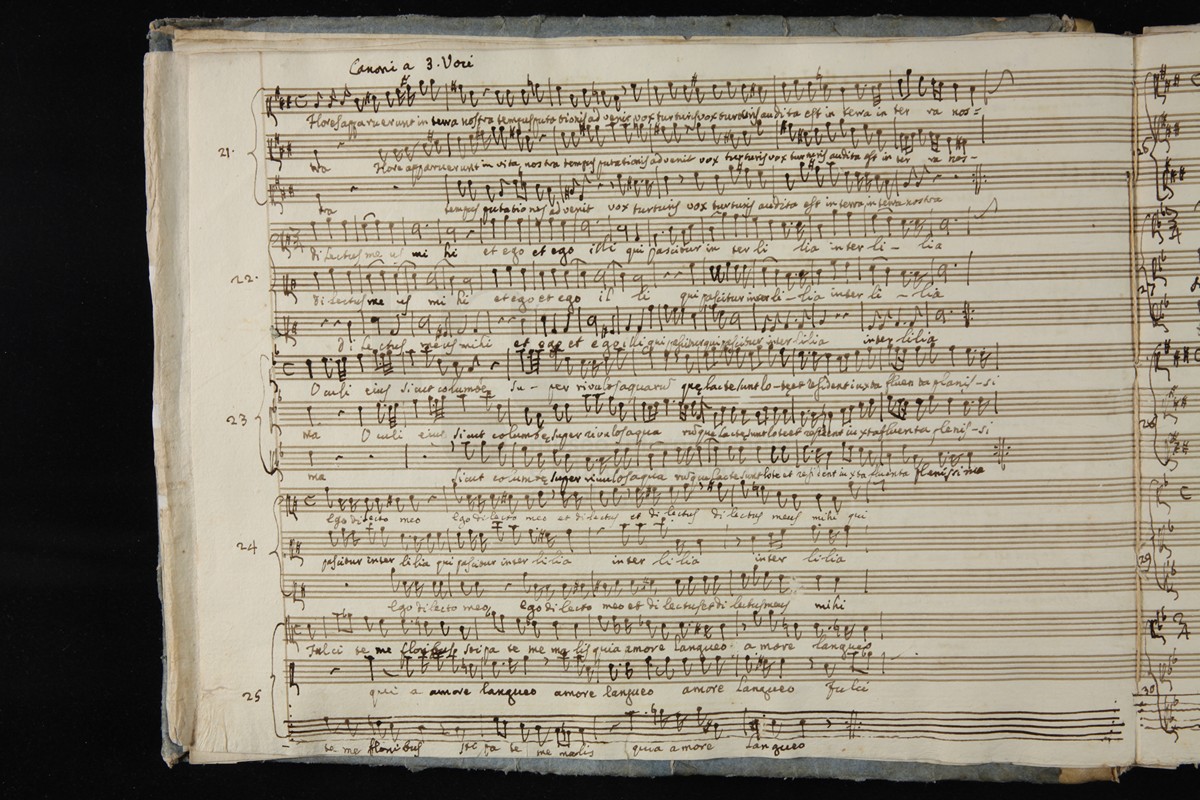 Canoni a 3. Voci
21.
Flores apparuerunt in terra nostra tempus putationis advenit vox turturis vox turturis audita est in terra in ter ra nos=
tra Flore apparuerunt in vita nostra tempus putationis advenit vox turturis vox turturis audita est in ter ra nos-
tra tempus putationis advenit vox turturis vox turturis audita est in terra in terra nostra
22.
dilectus me us mi hi et ego et ego illi qui pascitur in ter li lia inter li - lia
dilectus me us mi hi et ego et ego il li qui pascitur inter li - lia inter li - lia
dilectus meus mihi et ego et ego illi qui pascitur qui pascitur inter lilia inter lilia
23
Oculi eius sicut columbę su - per rivulos aquarũ quę lacte sunt lo - tę et resident iuxta fluen ta plenis - si
ma Oculi eius sicut columbę super rivulos aqua rũ que lacte sunt lote et resident iuxta fluenta plenis - si
ma sicut columbę super rivulos aqua rũ que lacte sunt lote et resident iuxta fluenta plenissima
24
Ego dilecto meo Ego dilecto meo et dilectus et dilectus dilectus meus mihi qui
pascitur inter lilia qui pascitur inter lilia inter lilia inter lilia
Ego dilecto meo Ego dilecto meo et dilectus et dilectus meus mihi
25
Fulci te me floribus stipa te me malis quia amore langueo a more langueo
qui a amore langueo amore langueo amore langueo Fulci
te me floribus sti pa te me malis quia amore langueo
26
29
30